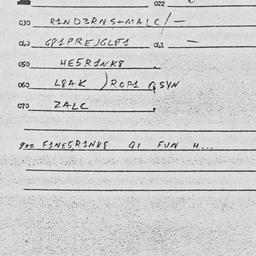 022
030 R1ND3RNS+MALC/-
040 GP1PREJGLPT1 041 -
050 HE5R1NK8
060 L8AK )ROP1 QSYN
070 ZALC
900 F1NE5R1NK8 Q1 FUN H...